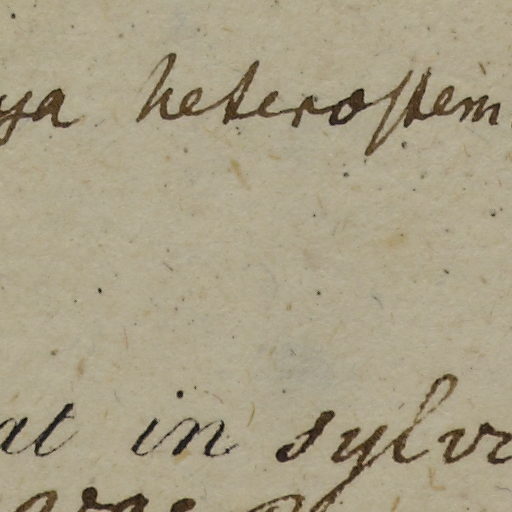 ya heterostem
at in sylv